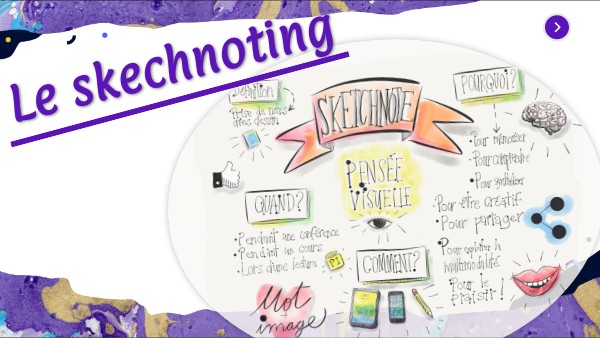 Le skechnoting
Définition
Prise de notes
avec dessin
SKETCHNOTE
POURQUOI?
• Pour mémoriser
• Pour comprendre
• Pour synthétiser
• Pour être créatif
• Pour partager
• Pour explorer la
multimodalité
• Pour le
plaisir!
PENSÉE
VISUELLE
QUAND?
• Pendant une conférence
• Pendant un cours
• Lors d'une lecture
COMMENT?
Mot
+
image